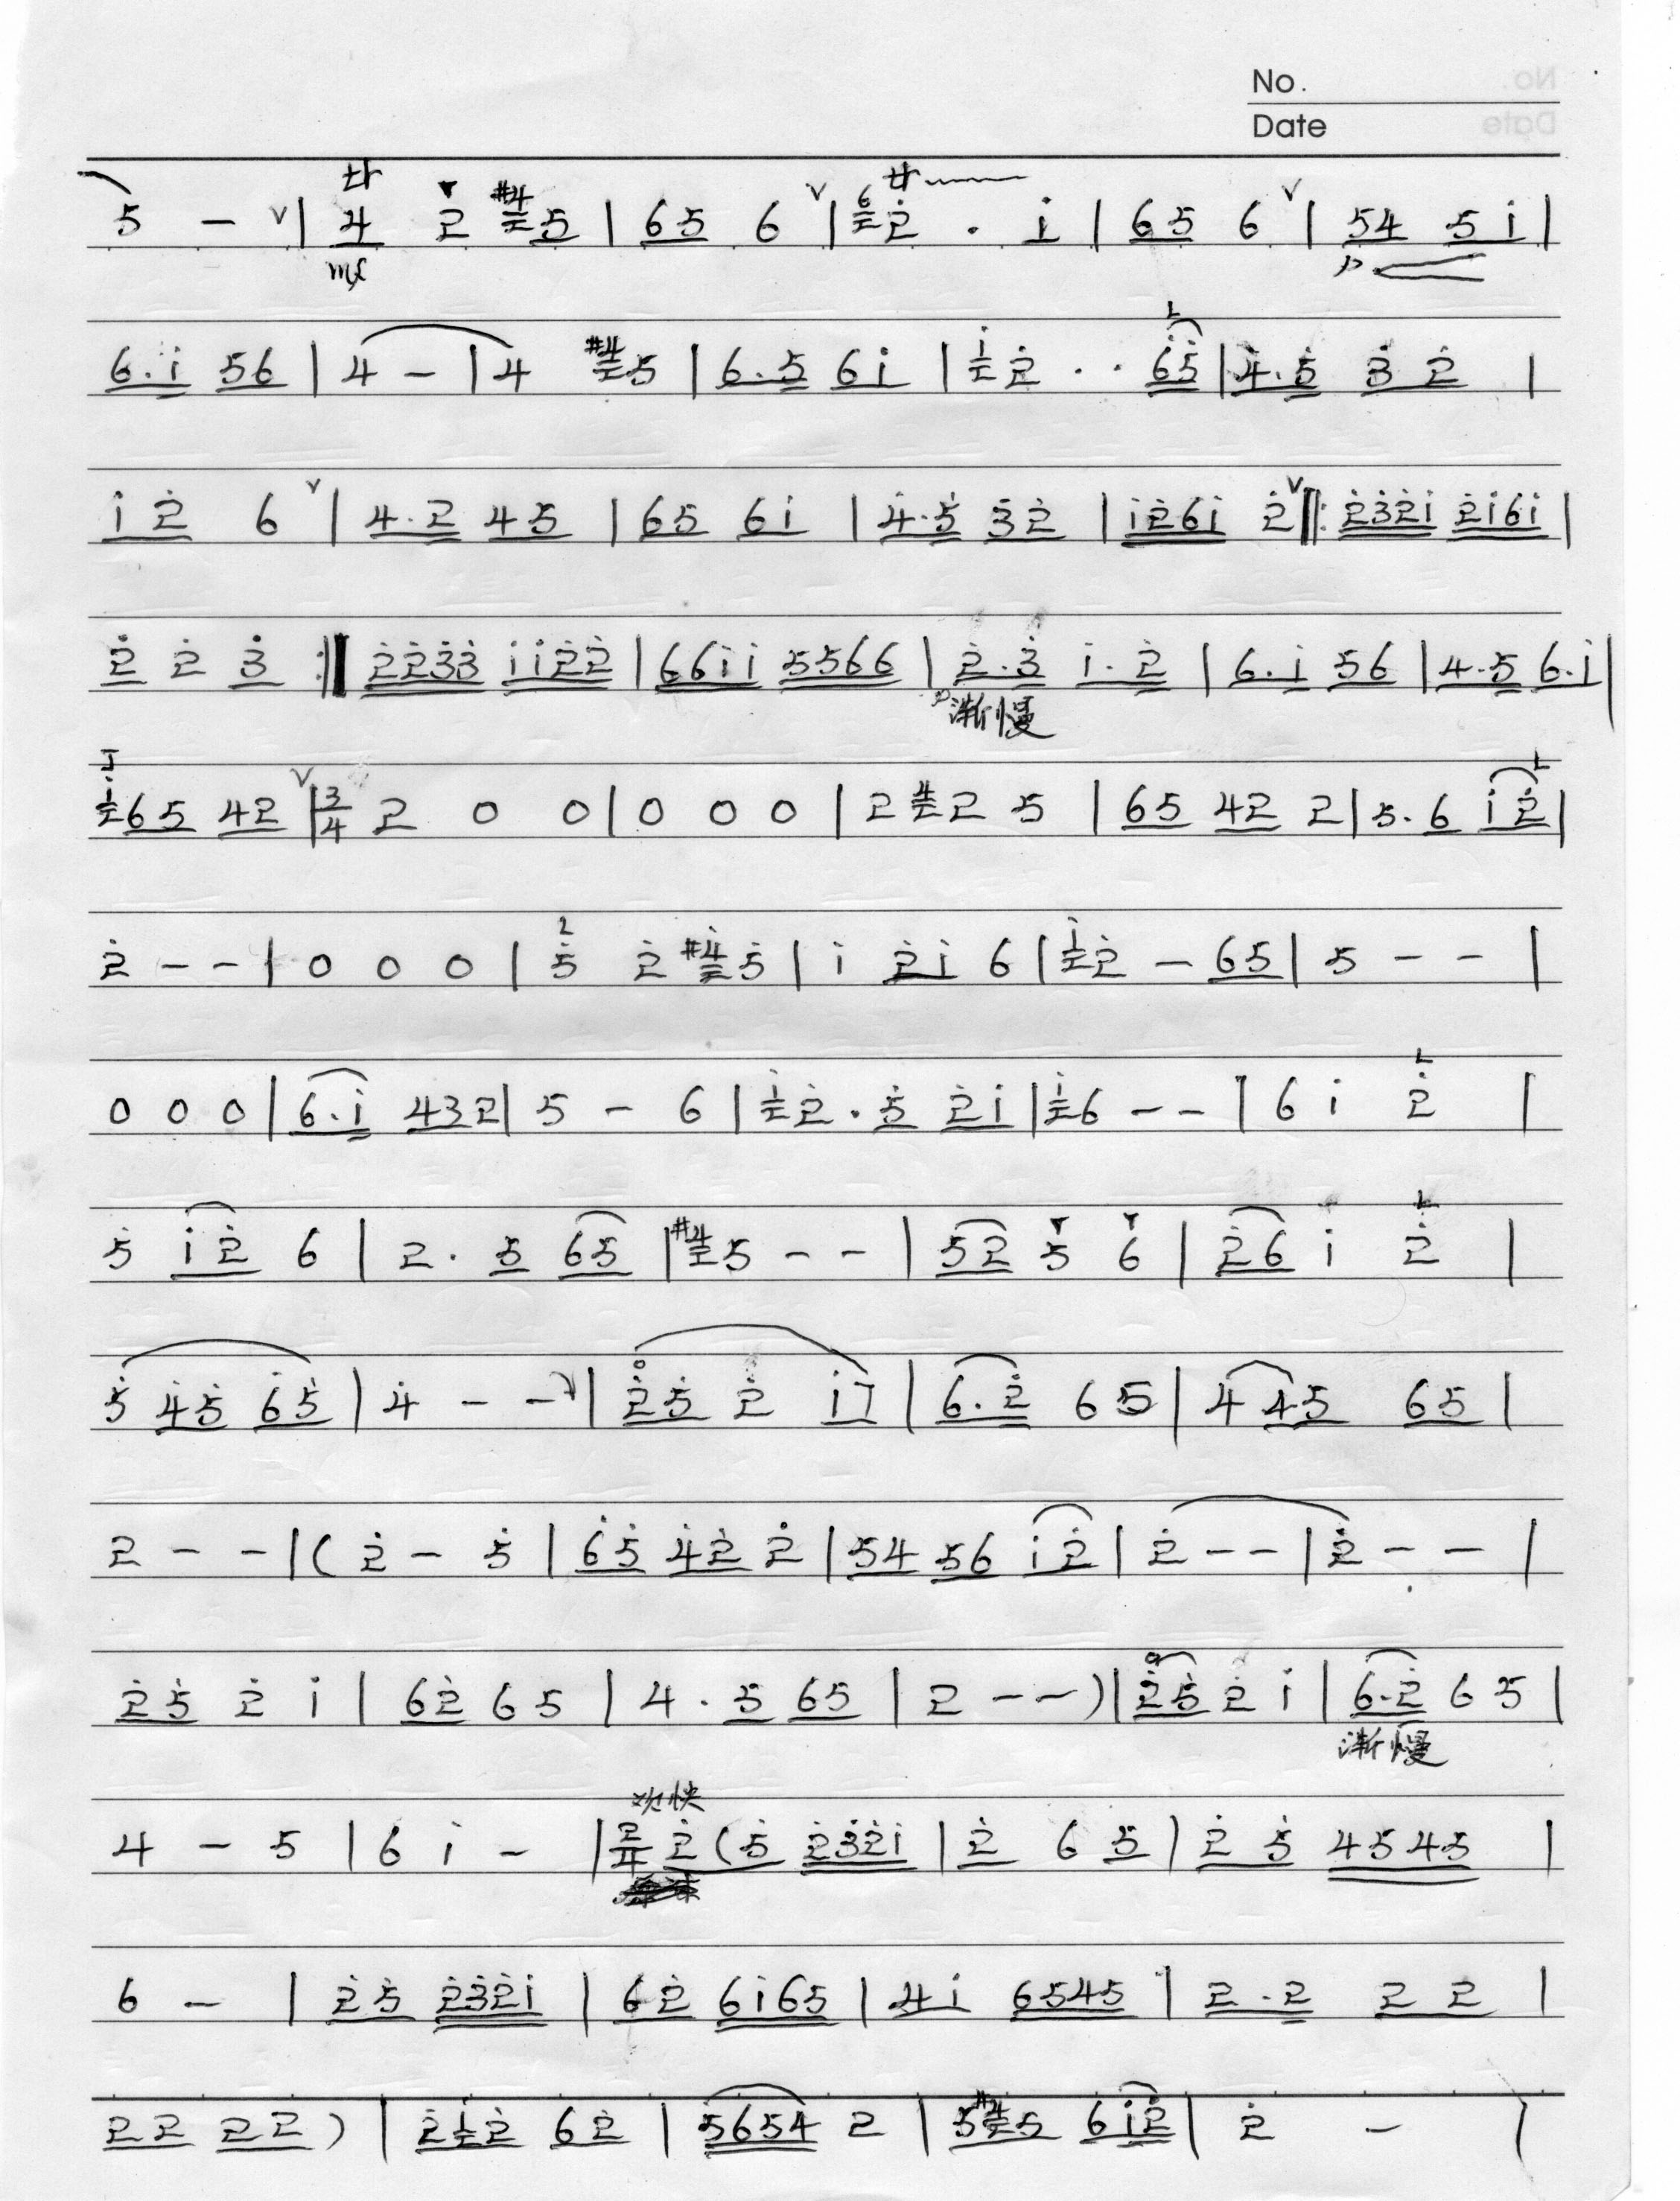 No.
Date
サ サ
5 - v | 4 2 #4 5 | 65 6 v | 6 2̇ . i̇ | 65 6 v | 54 5i̇ |
mf p
6.i̇ 56 | 4 - | 4 #4 5 | 6.5 6i̇ | i̇ 2̇ · · 6̇5̇ | 4̇.5̇ 3̇ 2̇ |
i̇ 2̇ 6 v | 4.2 45 | 65 6i̇ | 4̇.5̇ 3̇2̇ | i̇2̇6i̇ 2̇ v ‖: 2̇3̇2̇i̇ 2̇i̇6i̇ |
2̇ 2̇ 3̇ :‖ 2̇2̇3̇3̇ i̇i̇2̇2̇ | 66i̇i̇ 5566 | 2̇.3̇ i̇.2̇ | 6.i̇ 56 | 4.5 6.i̇ |
渐慢
i̇ 65 42 v | 3/4 2 0 0 | 0 0 0 | 2 4 2 5 | 65 42 2 | 5.6 i̇2̇ |
2̇ - - | 0 0 0 | 5̇ 2̇ #4̇ 5̇ | i̇ 2̇i̇ 6 | i̇ 2̇ - 65 | 5 - - |
0 0 0 | 6.i̇ 432 | 5 - 6 | i̇ 2̇ . 5̇ 2̇i̇ | i̇ 6 - - | 6 i̇ 2̇ |
5̇ i̇2̇ 6 | 2 . 5 65 | #4 5 - - | 52 5 6 | 2̇6 i̇ 2̇ |
5̇ 4̇5̇ 6̇5̇ | 4̇ - - v | 2̇5̇ 2̇ i̇7 | 6.2̇ 65 | 4 45 65 |
2 - - | ( 2̇ - 5̇ | 6̇5̇ 4̇2̇ 2̇ | 54 56 i̇2̇ | 2̇ - - | 2̇ - - |
2̇5̇ 2̇ i̇ | 62̇ 6 5 | 4 . 5 65 | 2 - - ) | 2̇5̇ 2̇ i̇ | 6.2̇ 6 5 |
渐慢
欢快
4 - 5 | 6 i̇ - | 2/4 2̇ ( 5̇ 2̇3̇2̇i̇ | 2̇ 6 5 | 2̇ 5̇ 4545 |
6 - | 2̇5̇ 2̇3̇2̇i̇ | 62̇ 6i̇65 | 4i̇ 6545 | 2.2 2 2 |
22 22 ) | 2̇ i̇ 2̇ 62̇ | 5654 2 | 5 #4 5 6i̇2̇ | 2̇ - |